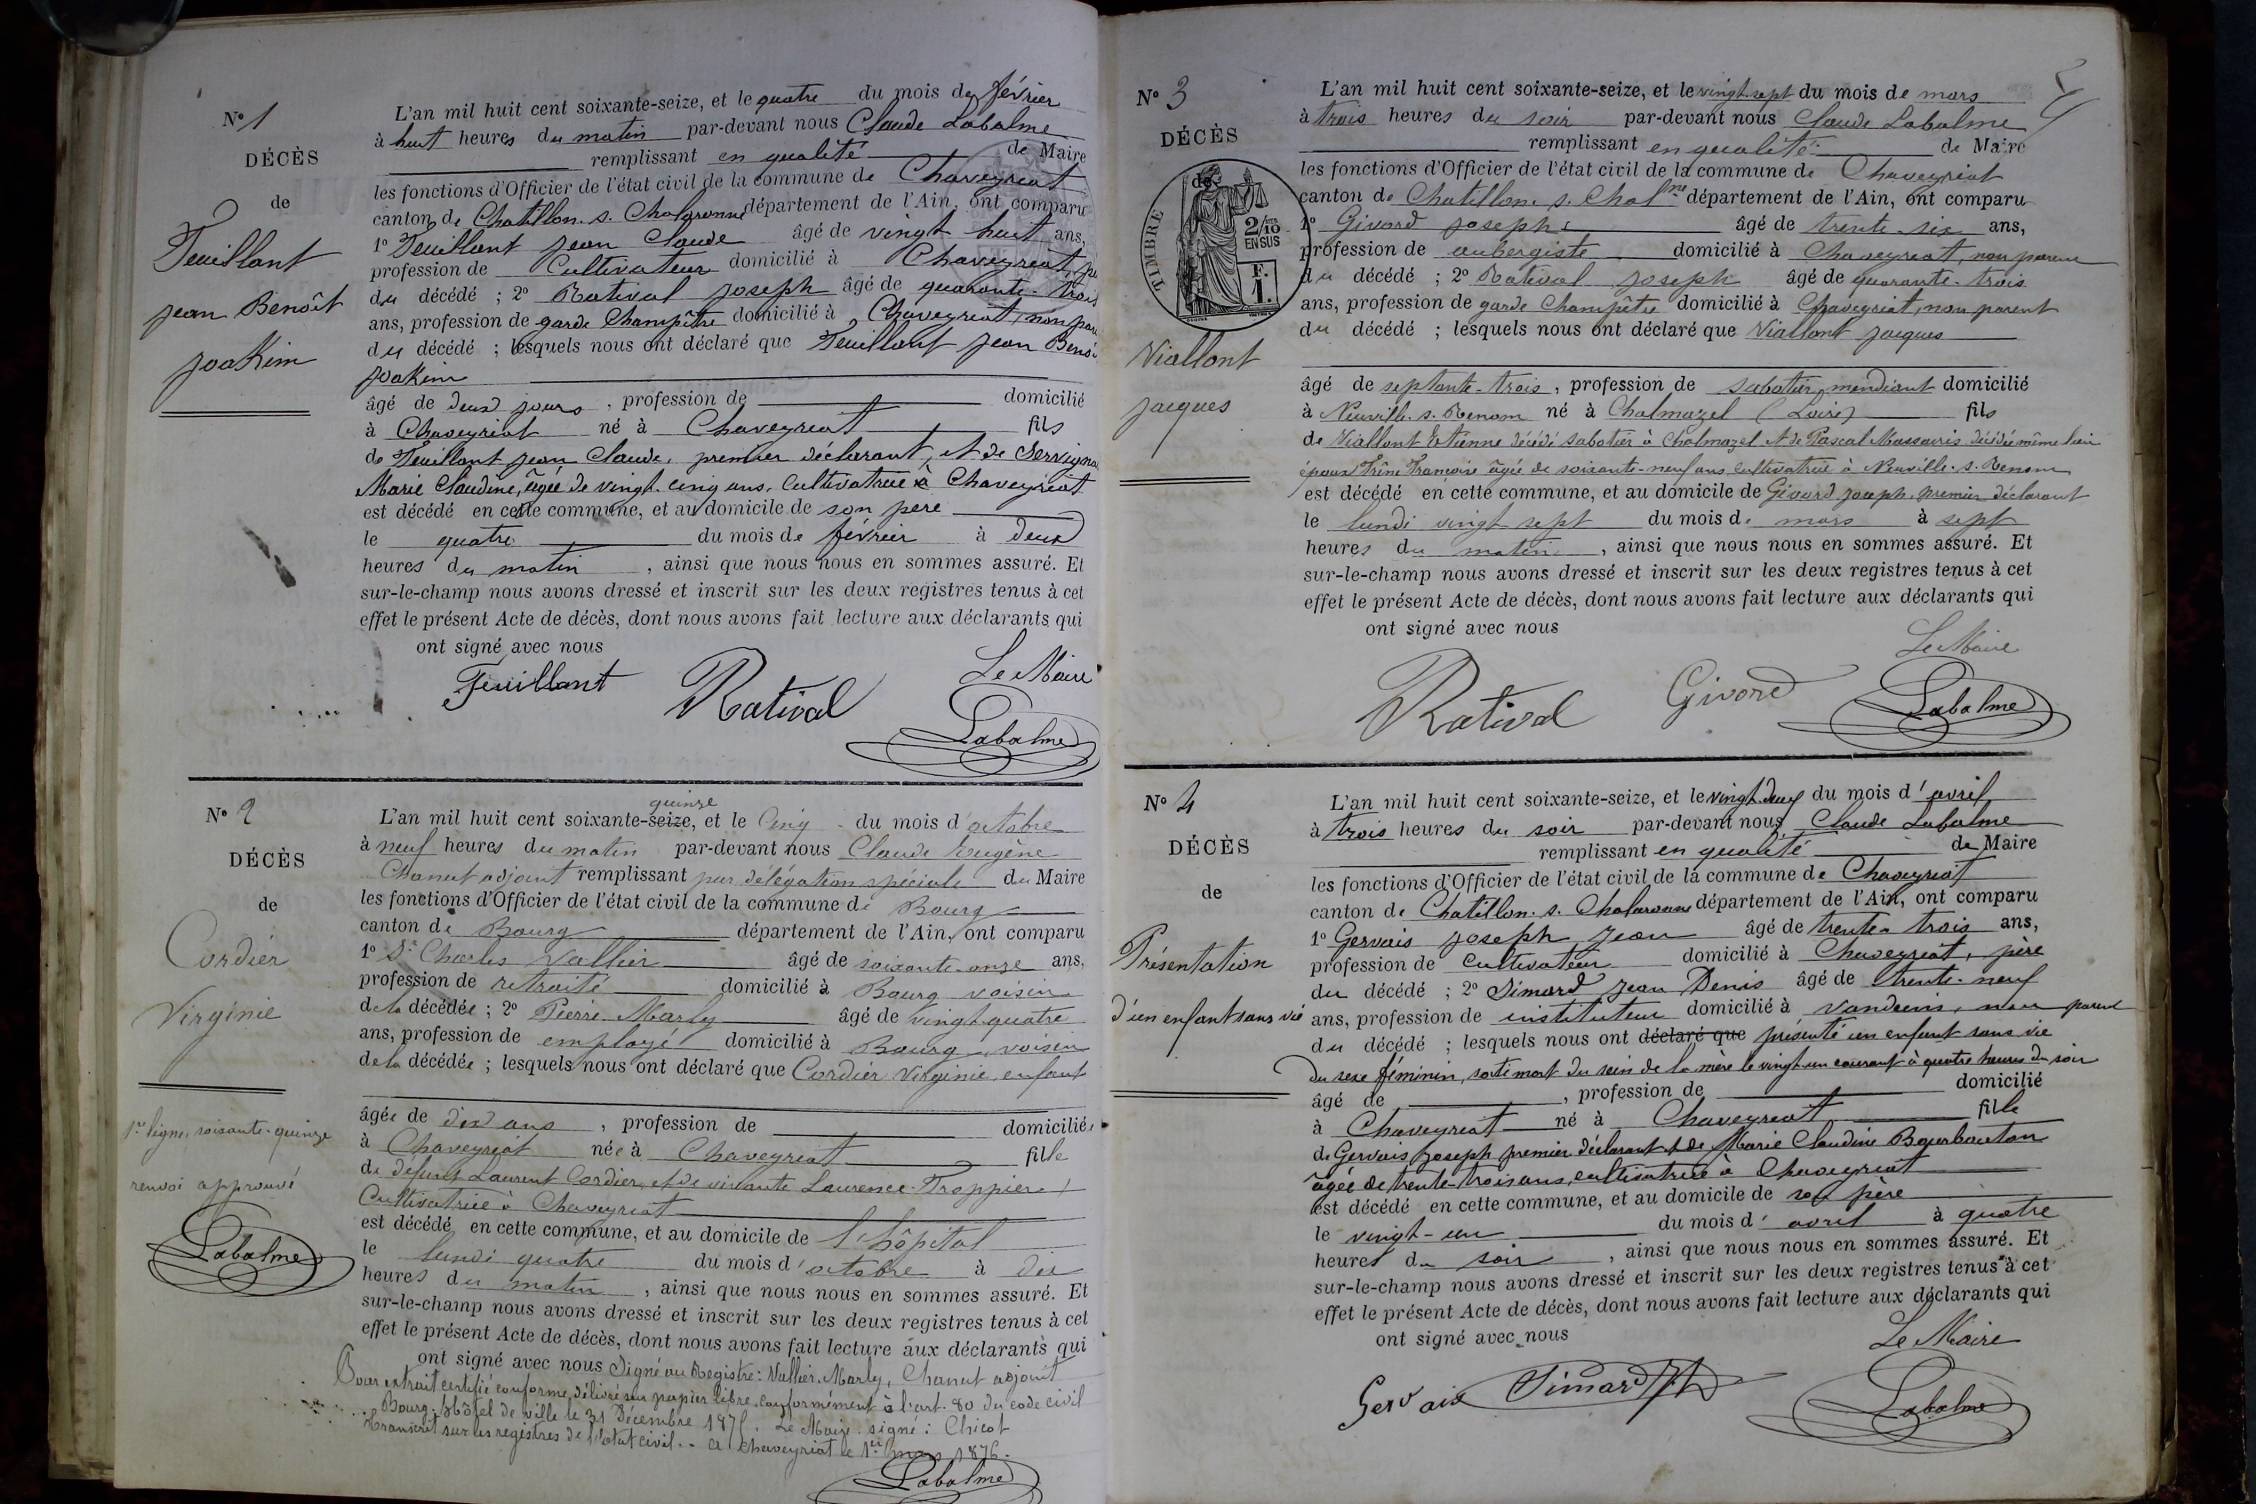 N° 1
DÉCÈS
de
Feuillant
Jean Benoît
Joakim
L'an mil huit cent soixante-seize, et le quatre du mois de février
à huit heures du matin par-devant nous Claude Labalme
remplissant en qualité de Maire
les fonctions d'Officier de l'état civil de la commune de Chaveyriat
canton de Chatillon. s. Chalaronne département de l'Ain, ont comparu
1° Feuillant Jean Claude âgé de vingt huit ans,
profession de Cultivateur domicilié à Chaveyriat,
du décédé ; 2° Ratival Joseph âgé de quarante-trois
ans, profession de garde Champêtre domicilié à Chaveyriat, non
du décédé ; lesquels nous ont déclaré que Feuillant Jean Benoî
Joakim
âgé de deux jours, profession de domicilié
à Chaveyriat né à Chaveyriat fils
de Feuillant Jean Claude, premier déclarant, et de
Marie Claudine, âgée de vingt-cinq ans, Cultivatrice à Chaveyriat
est décédé en cette commune, et au domicile de son père
le quatre du mois de février à deux
heures du matin, ainsi que nous nous en sommes assuré. Et
sur-le-champ nous avons dressé et inscrit sur les deux registres tenus à cet
effet le présent Acte de décès, dont nous avons fait lecture aux déclarants qui
ont signé avec nous
Le Maire
Feuillant Ratival
Labalme
N° 2
DÉCÈS
de
Cordier
Virginie
1re ligne, soixante-quinze
renvoi approuvé
Labalme
quinze
L'an mil huit cent soixante-seize, et le Cinq du mois d'octobre
à neuf heures du matin par-devant nous Claude Eugène
Chanut adjoint remplissant par délégation spéciale du Maire
les fonctions d'Officier de l'état civil de la commune de Bourg
canton de Bourg département de l'Ain, ont comparu
1° Sr Charles Vallier âgé de soixante-onze ans,
profession de retraité domicilié à Bourg voisin
de la décédée ; 2° Pierre Marly âgé de vingt quatre
ans, profession de employé domicilié à Bourg, voisin
de la décédée ; lesquels nous ont déclaré que Cordier Virginie, enfant
âgée de dix ans, profession de domiciliée
à Chaveyriat née à Chaveyriat fille
de défunt Laurent Cordier, et de vivante Laurence Troppier
Cultivatrice à Chaveyriat
est décédé en cette commune, et au domicile de l'hôpital
le lundi quatre du mois d'octobre à dix
heures du matin, ainsi que nous nous en sommes assuré. Et
sur-le-champ nous avons dressé et inscrit sur les deux registres tenus à cet
effet le présent Acte de décès, dont nous avons fait lecture aux déclarants qui
ont signé avec nous Signé au Registre: Vallier, Marly, Chanut adjoint
Pour extrait certifié conforme, délivré sur papier libre, conformément à l'art. 80 du code civil
Bourg. hôtel de ville le 31 Décembre 1875. Le Maire. signé: Chicot
Transcrit sur les registres de l'état civil. - à Chaveyriat le 1er mars 1876.
Labalme
N° 3
DÉCÈS
de
TIMBRE
2/10 EN SUS
F. 1.
Viallont
Jacques
L'an mil huit cent soixante-seize, et le vingt-sept du mois de mars
à trois heures du soir par-devant nous Claude Labalme
remplissant en qualité de Maire
les fonctions d'Officier de l'état civil de la commune de Chaveyriat
canton de Chatillon s. Chalne département de l'Ain, ont comparu
1° Givord Joseph âgé de trente-six ans,
profession de aubergiste domicilié à Chaveyriat, non parent
du décédé ; 2° Ratival Joseph âgé de quarante-trois
ans, profession de garde Champêtre domicilié à Chaveyriat, non parent
du décédé ; lesquels nous ont déclaré que Viallont Jacques
âgé de septante-trois, profession de sabotier, mendiant domicilié
à Neuville. s. Renom né à Chalmazel (Loire) fils
de Viallont Etienne décédé sabotier à Chalmazel et de Pascal décédée même lieu
époux Françoise âgée de soixante-neuf ans, cultivatrice à Neuville. s. Renom
est décédé en cette commune, et au domicile de Givord Joseph, premier déclarant
le lundi vingt sept du mois de mars à sept
heures du matin, ainsi que nous nous en sommes assuré. Et
sur-le-champ nous avons dressé et inscrit sur les deux registres tenus à cet
effet le présent Acte de décès, dont nous avons fait lecture aux déclarants qui
ont signé avec nous
Le Maire
Ratival Givord Labalme
N° 4
DÉCÈS
de
Présentation
d'un enfant sans vie
L'an mil huit cent soixante-seize, et le vingt-deux du mois d'avril
à trois heures du soir par-devant nous Claude Labalme
remplissant en qualité de Maire
les fonctions d'Officier de l'état civil de la commune de Chaveyriat
canton de Chatillon. s. Chalaronne département de l'Ain, ont comparu
1° Gervais Joseph Jean âgé de trente-trois ans,
profession de Cultivateur domicilié à Chaveyriat, père
du décédé ; 2° Simard Jean Denis âgé de trente-neuf
ans, profession de instituteur domicilié à Vandeins, non parent
du décédé ; lesquels nous ont déclaré que présenté un enfant sans vie
du sexe féminin, sorti mort du sein de la mère le vingt-un courant à quatre heures du soir
âgé de , profession de domicilié
à Chaveyriat né à Chaveyriat fille
de Gervais Joseph premier déclarant et de Marie Claudine Bourbouton
âgée de trente-trois ans, cultivatrice à Chaveyriat
est décédé en cette commune, et au domicile de son père
le vingt-un du mois d'avril à quatre
heures du soir, ainsi que nous nous en sommes assuré. Et
sur-le-champ nous avons dressé et inscrit sur les deux registres tenus à cet
effet le présent Acte de décès, dont nous avons fait lecture aux déclarants qui
ont signé avec nous
Le Maire
Gervais Simard Labalme